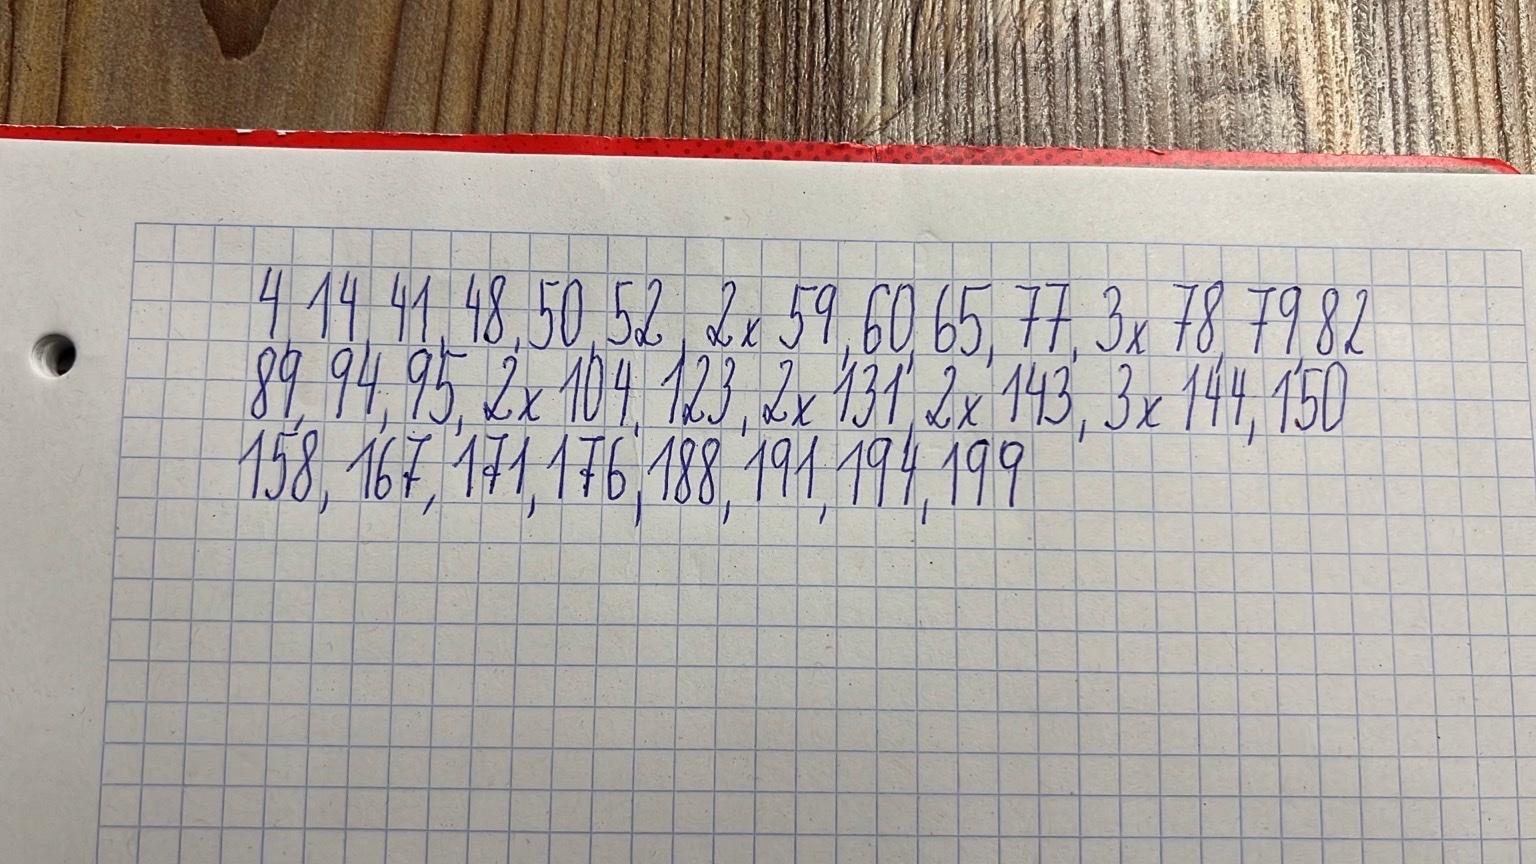 4, 14, 41, 48, 50, 52, 2x 59, 60, 65, 77, 3x 78, 79, 82
89, 94, 95, 2x 104, 123, 2x 131, 2x 143, 3x 144, 150
158, 167, 171, 176, 188, 191, 194, 199